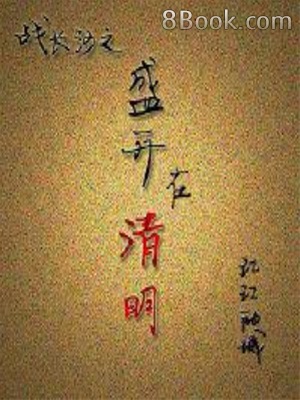 8Book.com
战长沙之
盛开在清明